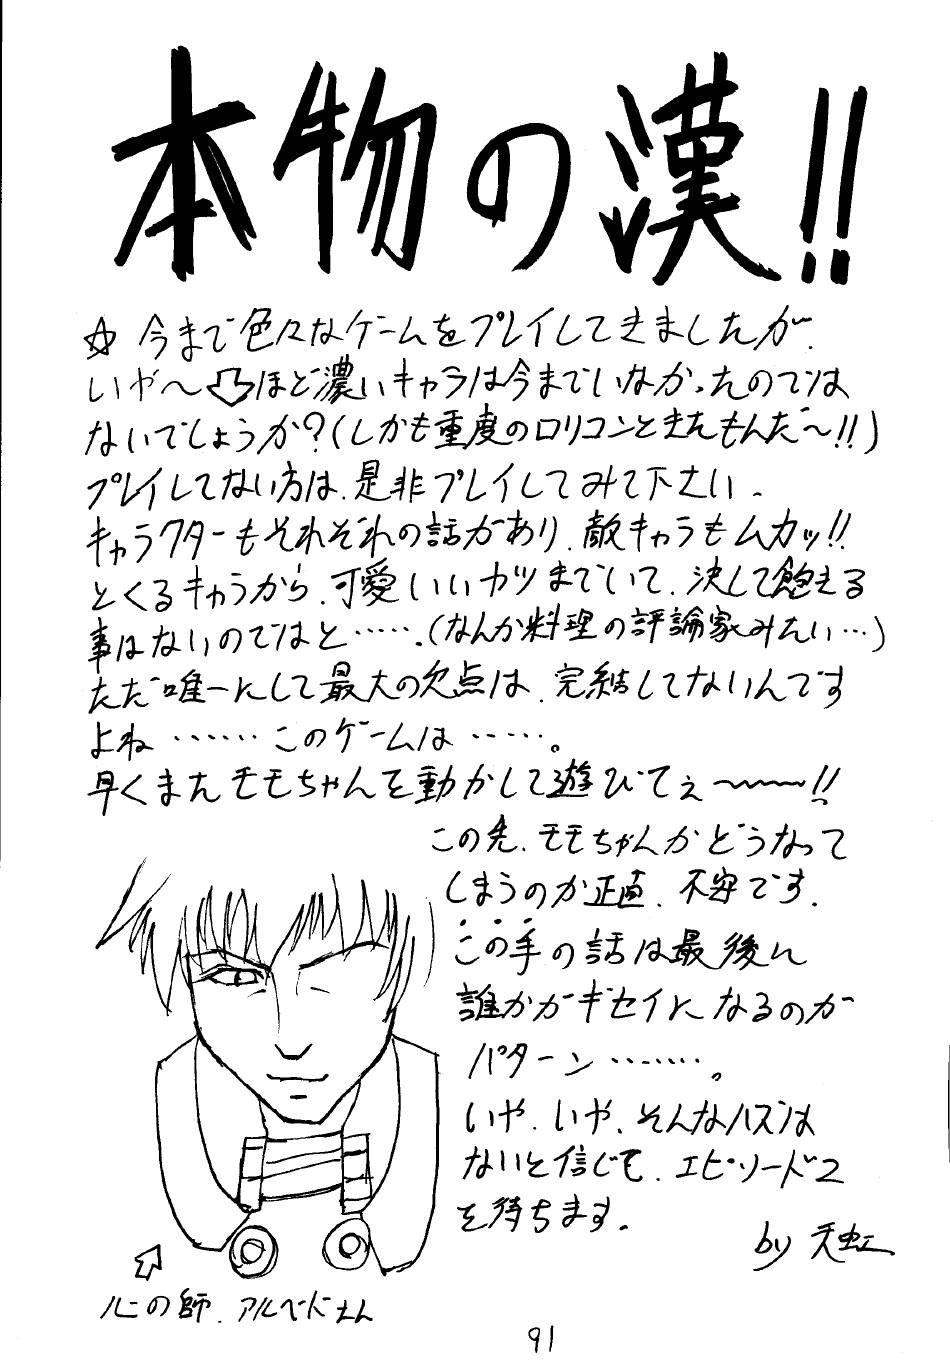 本物の漢!!
☆ 今まで色々なゲームをプレイしてきましたが、
いや〜⇩ほど濃いキャラは今までいなかったのでは
ないでしょうか?(しかも重度のロリコンときたもんだ〜!!)
プレイしてない方は、是非プレイしてみて下さい。
キャラクターもそれぞれの話があり、敵キャラもムカッ!!
とくるキャラから、可愛いいヤツまでいて、決して飽える
事はないのではと……。(なんか料理の評論家みたい…)
ただ唯一にして最大の欠点は、完結してないんです
よね ……… このゲームは ……。
早くまたモモちゃんを動かして遊びてぇ〜〜〜!!
この先、モモちゃんがどうなって
しまうのか正直、不安です。
この手の話は最後に
誰かがギセイになるのが
パターン………。
いや、いや、そんなハズは
ないと信じて、エピソード2
を待ちます。
by 天虹
心の師、アルベドさん
91